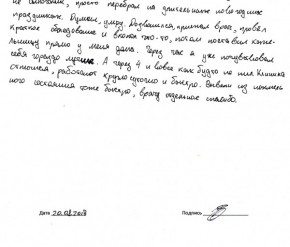 не алкоголик, просто перебрал на длительных новогодних
праздниках. Думал, умру. Дозвонился, приехал врач, провёл
краткое обследование и вколол что-то, потом поставил капе-
льницу прямо у меня дома. Через час я уже почувствовал
себя гораздо лучше. А через 4 и вовсе как будто не пил. Клиника
отличная, работают круглосуточно и быстро. Вывели из
ного состояния тоже быстро, врачу отдельное спасибо.
Дата 20.01.2018 Подпись